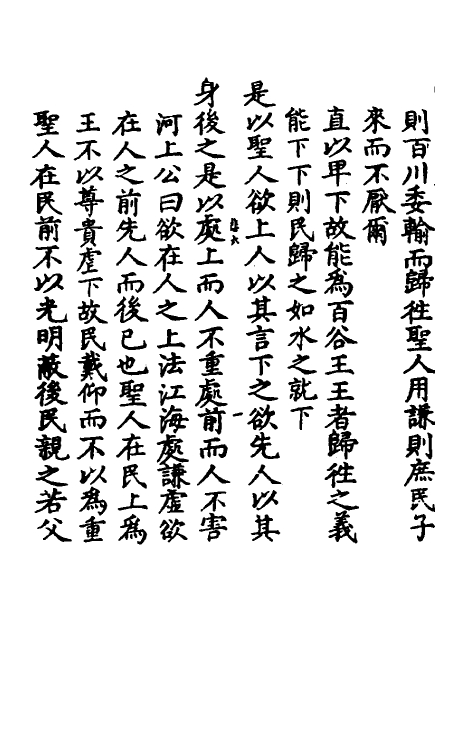 則百川委輸而歸徃聖人用謙則庶民子
來而不厭爾
直以卑下故能為百谷王王者歸徃之義
能下下則民歸之如水之就下
是以聖人欲上人以其言下之欲先人以其
身後之是以處上而人不重處前而人不害
河上公曰欲在人之上法江海處謙虛欲
在人之前先人而後已也聖人在民上為
王不以尊貴虐下故民戴仰而不以為重
聖人在民前不以光明蔽後民親之若父